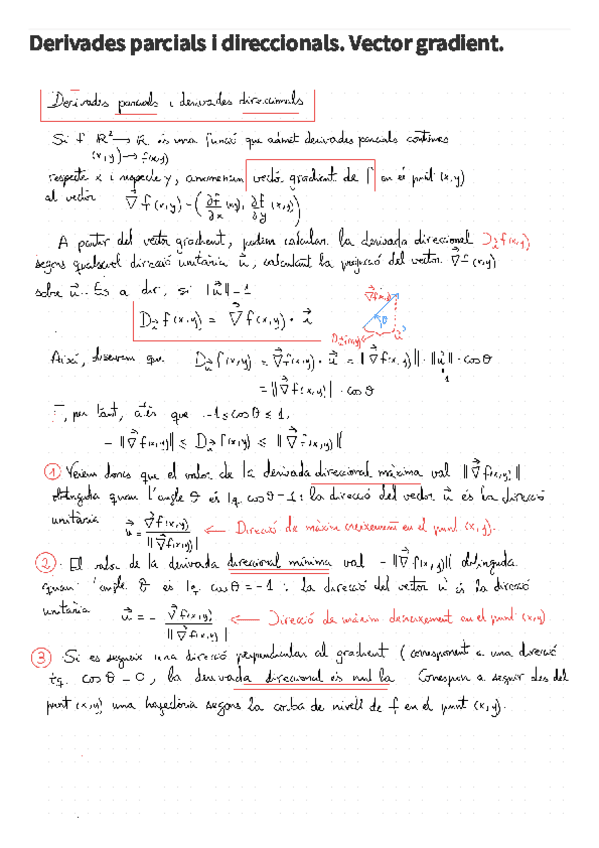 Derivades parcials i direccionals. Vector gradient.
Derivades parcials i derivades direccionals
Si f ℝ² → ℝ és una funció que admet derivades parcials contínues
(x,y) → f(x,y)
respecte x i respecte y, anomenem vector gradient de f en el punt (x,y)
al vector ∇⃗f(x,y) = (∂f/∂x (x,y), ∂f/∂y (x,y))
A partir del vector gradient, podem calcular la derivada direccional D_u⃗ f(x,y)
segons qualsevol direcció unitària u⃗, calculant la projecció del vector ∇⃗f(x,y)
sobre u⃗. És a dir, si ‖u⃗‖ = 1
D_u⃗ f(x,y) = ∇⃗f(x,y) · u⃗
∇⃗f(x,y)
θ
u⃗
D_u⃗ f(x,y)
Així, observem que D_u⃗ f(x,y) = ∇⃗f(x,y) · u⃗ = ‖∇⃗f(x,y)‖ · ‖u⃗‖ · cosθ
1
= ‖∇⃗f(x,y)‖ · cosθ
I, per tant, atès que -1 ≤ cosθ ≤ 1,
- ‖∇⃗f(x,y)‖ ≤ D_u⃗ f(x,y) ≤ ‖∇⃗f(x,y)‖
① Veiem doncs que el valor de la derivada direccional màxima val ‖∇⃗f(x,y)‖
obtinguda quan l'angle θ és tq. cosθ = 1 : la direcció del vector u⃗ és la direcció
unitària u⃗ = ∇⃗f(x,y) / ‖∇⃗f(x,y)‖ ← Direcció de màxim creixement en el punt (x,y).
② · El valor de la derivada direccional mínima val - ‖∇⃗f(x,y)‖ obtinguda
quan l'angle θ és tq cosθ = -1 : la direcció del vector u⃗ és la direcció
unitària u⃗ = - ∇⃗f(x,y) / ‖∇⃗f(x,y)‖ ← Direcció de màxim decreixement en el punt (x,y)
③ · Si es segueix una direcció perpendicular al gradient (corresponent a una direcció
tq. cosθ = 0, la derivada direccional és nul·la. Correspon a seguir des del
punt (x,y) una trajectòria segons la corba de nivell de f en el punt (x,y).